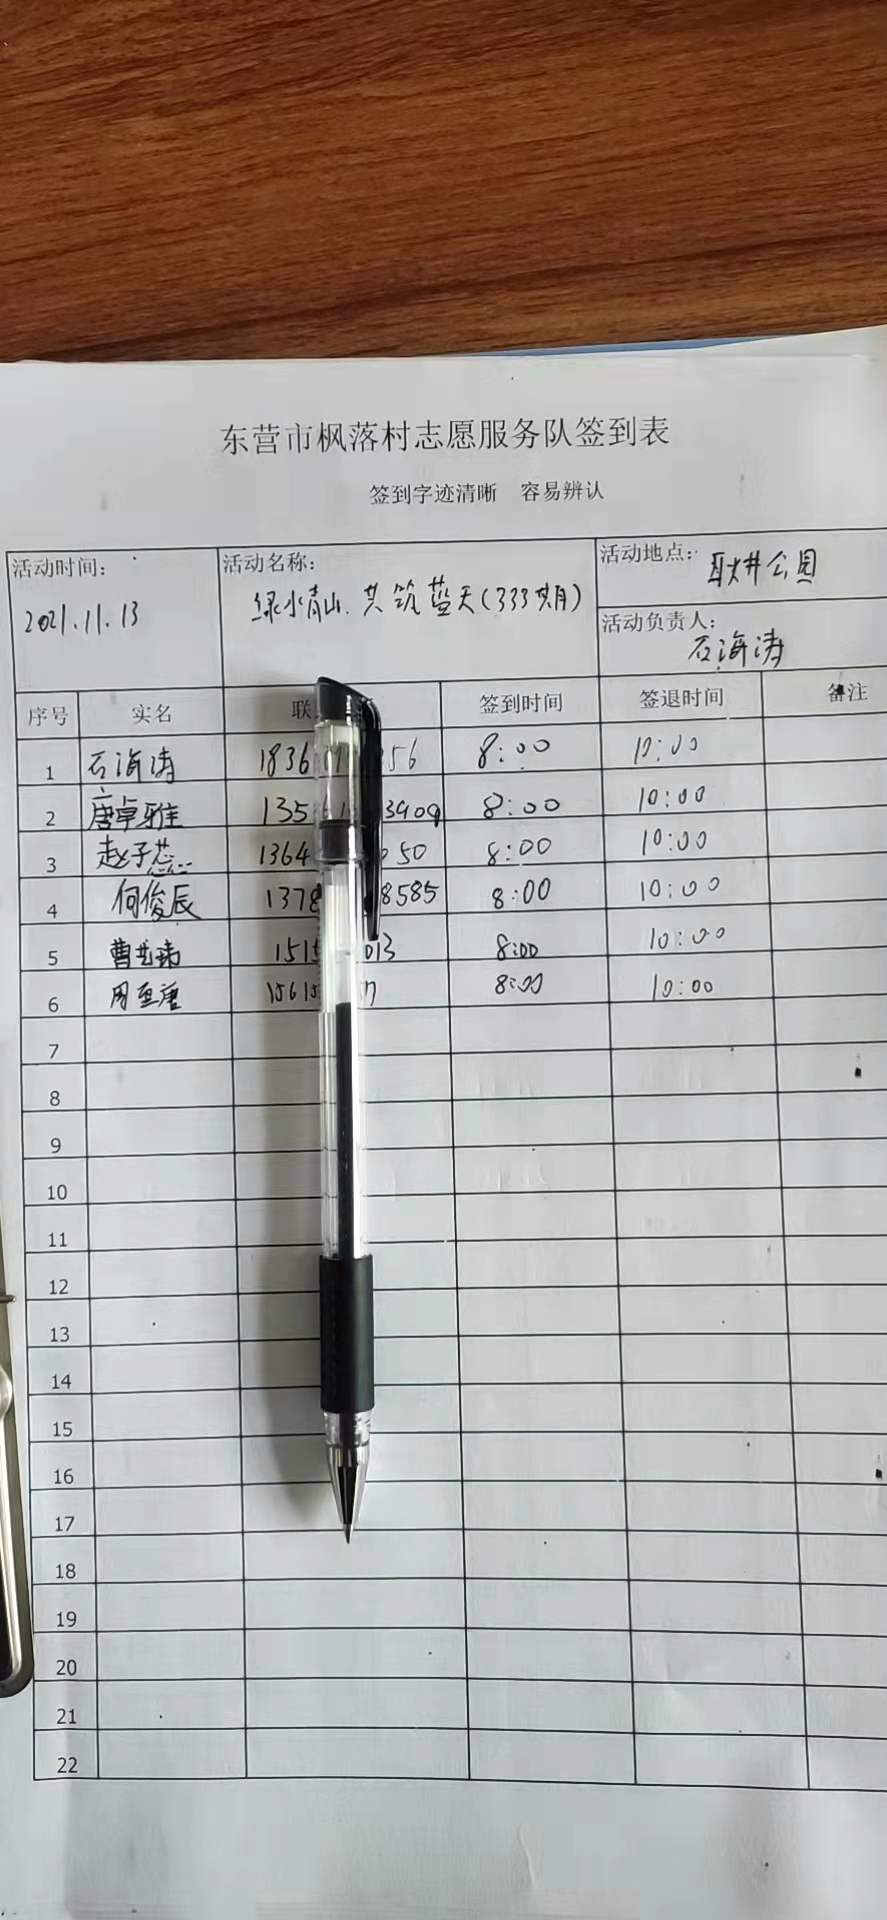 东营市枫落村志愿服务队签到表
签到字迹清晰 容易辨认
活动时间:
2021.11.13
活动名称:
绿水青山.共筑蓝天(333共月)
活动地点:
耿井公园
活动负责人:
石海涛
序号 实名 联 签到时间 签退时间 备注
1 石海涛 1836 56 8:00 10:00
2 唐卓雅 135 3909 8:00 10:00
3 赵子蕊 1364 50 8:00 10:00
4 何俊辰 1378 8585 8:00 10:00
5 曹 151 013 8:00 10:00
6 周 唐 15615 8:00 10:00
7
8
9
10
11
12
13
14
15
16
17
18
19
20
21
22